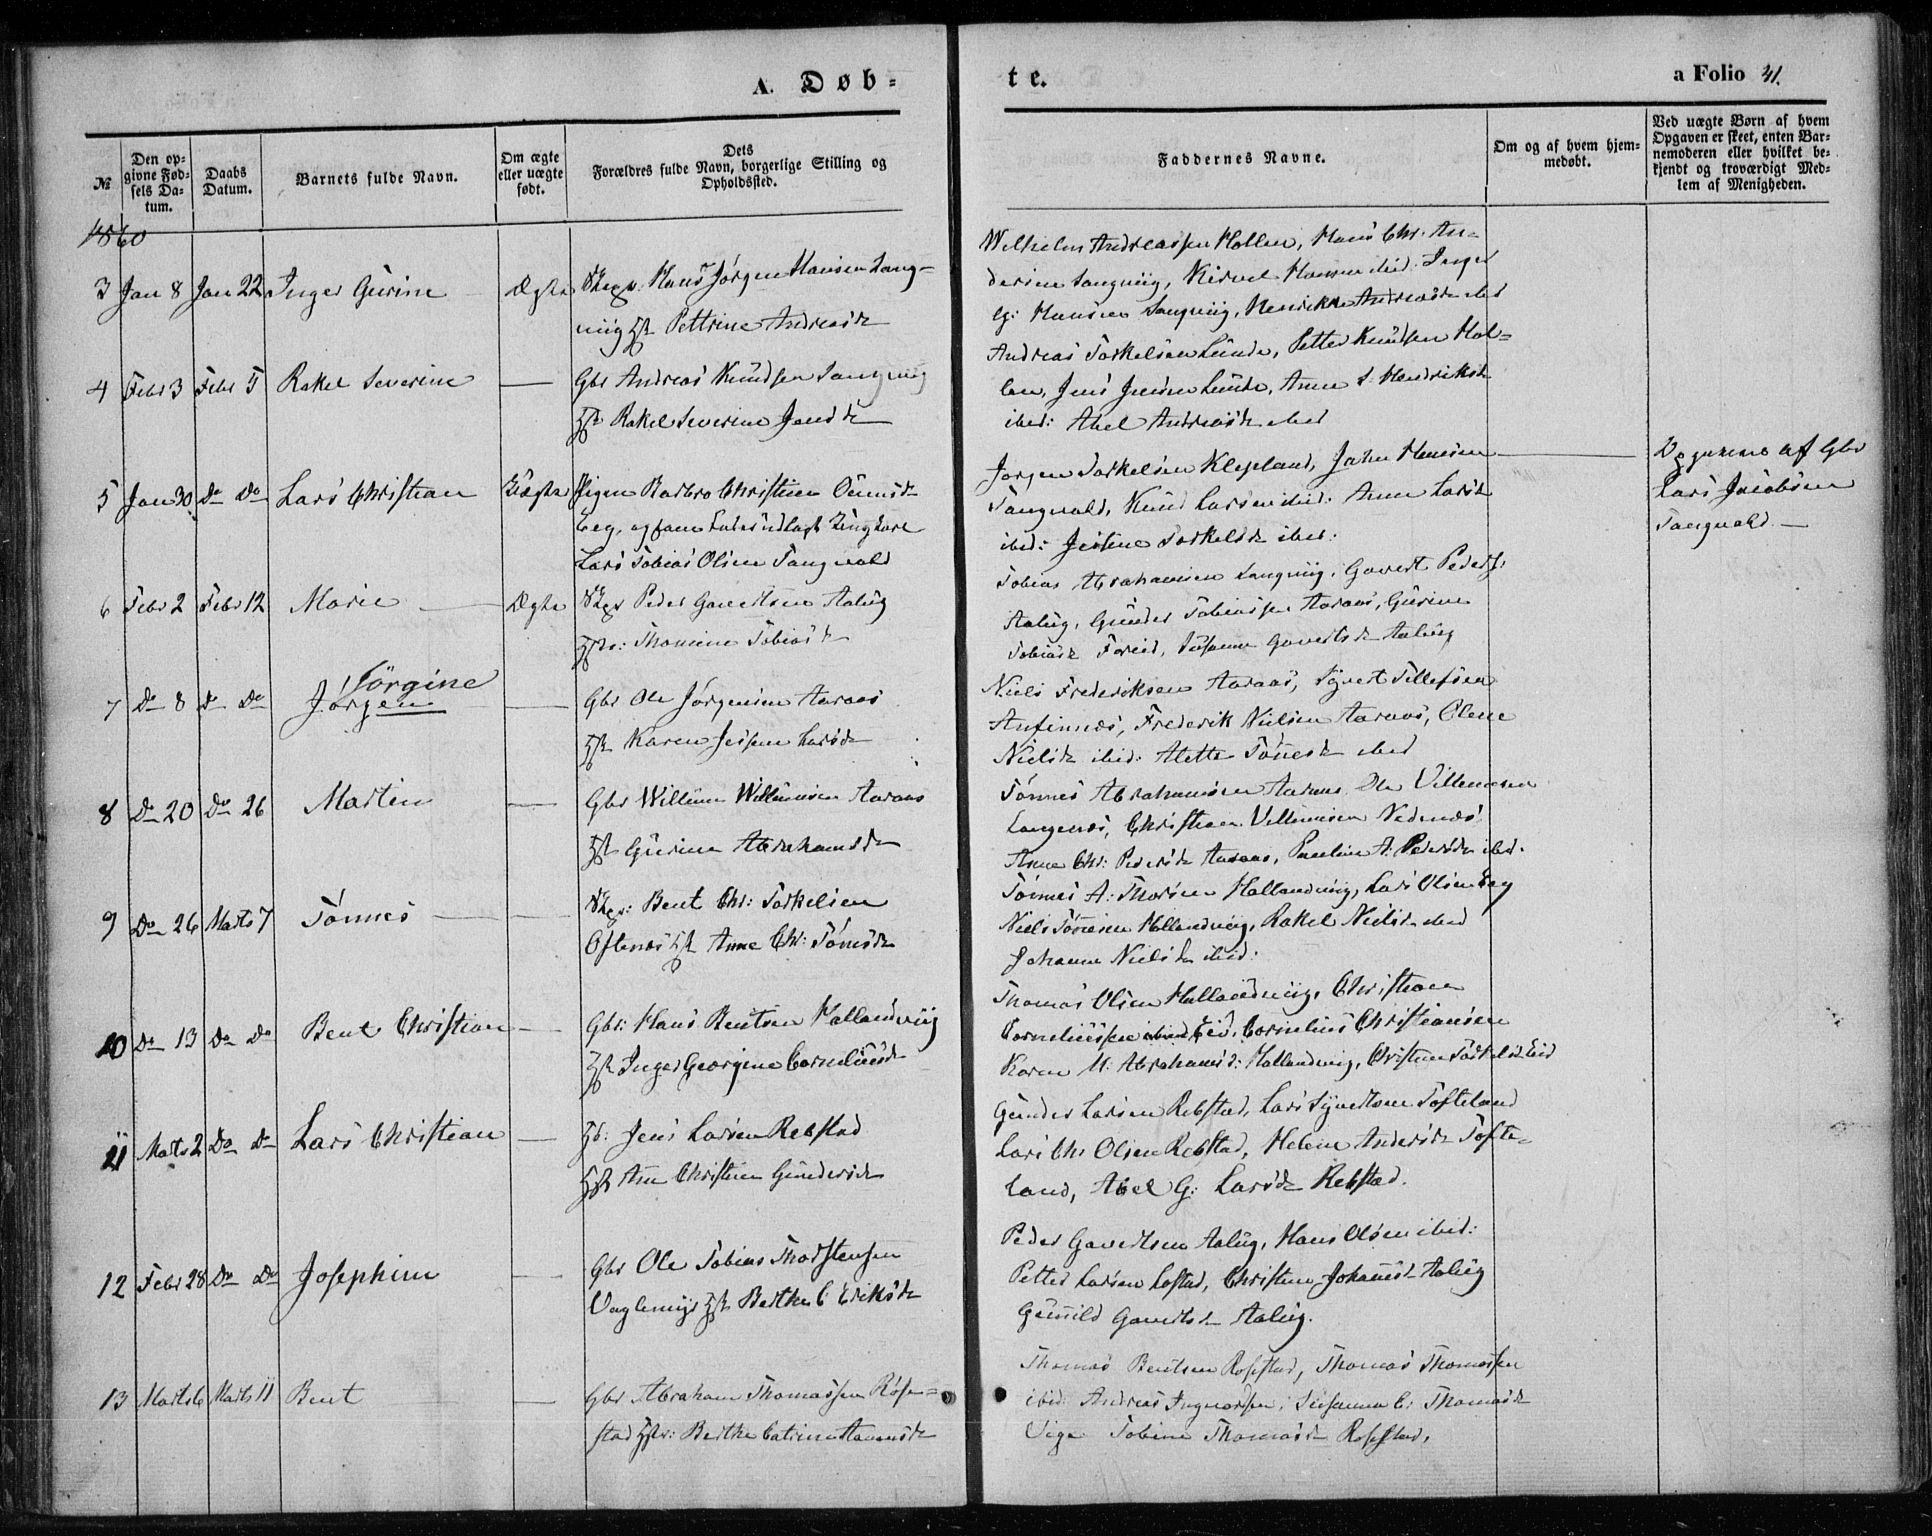 A. Døb-
te.
a Folio 31.
№
Den op-
givne Fød-
sels Da-
tum.
Daabs
Datum.
Barnets fulde Navn.
Om ægte
eller uægte
født.
Dets
Forældres fulde Navn, borgerlige Stilling og
Opholdssted.
Faddernes Navne.
Om og af hvem hjem-
medøbt.
Ved uægte Børn af hvem
Opgaven er skeet, enten Bar-
nemoderen eller hvilket be-
kjendt og troværdigt Med-
lem af Menigheden.
1860
3 Jan 8 Jan 22 Inger Gurine Ægte Hans Jørgen Hansen Lang-
viig Pettrine Andreasd
Wilhelm Andreassen Hollen, Hans Chr. An-
dersen Langviig, Hansen ibid: Inger
G: Hansen Langviig, Henrikke Andreasd ibid
4 Febr 3 Febr 5 Rakel Severine — Gbr Andreas Knudsen Langviig
Rakel Severine Jensd
Andreas Torkelsen Lunde, Petter Knudsen Hol-
len, Jens Jensen Lunde, Anne S. Hendriksd
ibid: Abel Andreasd ibid
5 Jan 30 Do Do Lars Christian Uægte Pigen Barbro Christine
Eeg, og som Fader udlagt Ungkarl
Lars Tobias Olsen Tangvald
Jørgen Torkelsen Klepland, John Hansen
Tangvald, Knud Larsen ibid: Anne Larsd
ibid: Torkelsd ibid:
af Gbr
Lars Jacobsen
Tangvald —
6 Febr 2 Febr 12 Marie — Ægte Peder Gavertsen Aalug
Thomine Tobiasd
Tobias Abrahamsen Langviig, Gavert Peders.
Aalug, Gunder Tobiassen Aaraas, Gurine
Tobiasd Susanne Gavertsd Aalug
7 Do 8 Do Do Jörgine
Jørgen — Gbr Ole Jørgensen Aaraas
Karen Larsd
Niels Frederiksen Aaraas, Syvert Tellefsen
Frederik Nielsen Aaraas, Olene
Nielsd ibid: Alette Tönnesd ibid
8 Do 20 Do 26 Martin — Gbr Willum Willumsen Aaraas
Gurine Abrahamsd
Tönnes Abrahamsen Aaraas Ole Villumsen
Langenæs, Christian Villumsen Nednæs
Anne Chr: Pedersd Aaraas, Pauline A. Pedersd ibid.
9 Do 26 Marts 7 Tönnes — Bent Chr: Torkelsen
Oftenæs Anne Chr: Tönnesd
Tönnes A: Thorsen Hallandviig, Lars Olsen Eeg
Niels Tönnesen Hallandviig, Rakel Nielsd ibid
Johanne Nielsd ibid:
10 Do 13 Do Do Bent Christian — Gbr: Hans Bentsen Hallandviig
Inger Georgine Corneliusd
Thomas Olsen Hallandviig, Christian
Corneliussen Eid, Cornelius Christiansen
Karen M: Abrahamsd: Hallandviig, Christine Torkelsd Eid
11 Marts 2 Do Do Lars Christian — Jens Larsen Rebstad
Ane Christine Gundersd
Gunder Larsen Rebstad, Lars Syvertsen Tofteland
Lars Chr Olsen Rebstad, Helene Andersd Tofte-
land, Abel G: Larsd Rebstad.
12 Febr 28 Do Do Josephine — Gbr Ole Tobias Thorstensen
Vaglemyr Berthe C Eriksd
Peder Gavertsen Aalug, Hans Olsen ibid:
Petter Larsen Lastad, Christine Johansd Aalug
Gunild Gavertsd Aalug.
13 Marts 6 Marts 11 Bent — Gbr Abraham Thomassen Rosse-
stad Berthe Catrine Aanensd
Thomas Bentsen Rosestad, Thomas Thomassen
ibid: Andreas Susanne C: Thomasd
Vige Tobine Thomasd Rosestad.